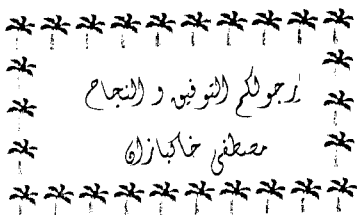 أرجولكم التوفيق و النجاح
مصطفى خاكبازان